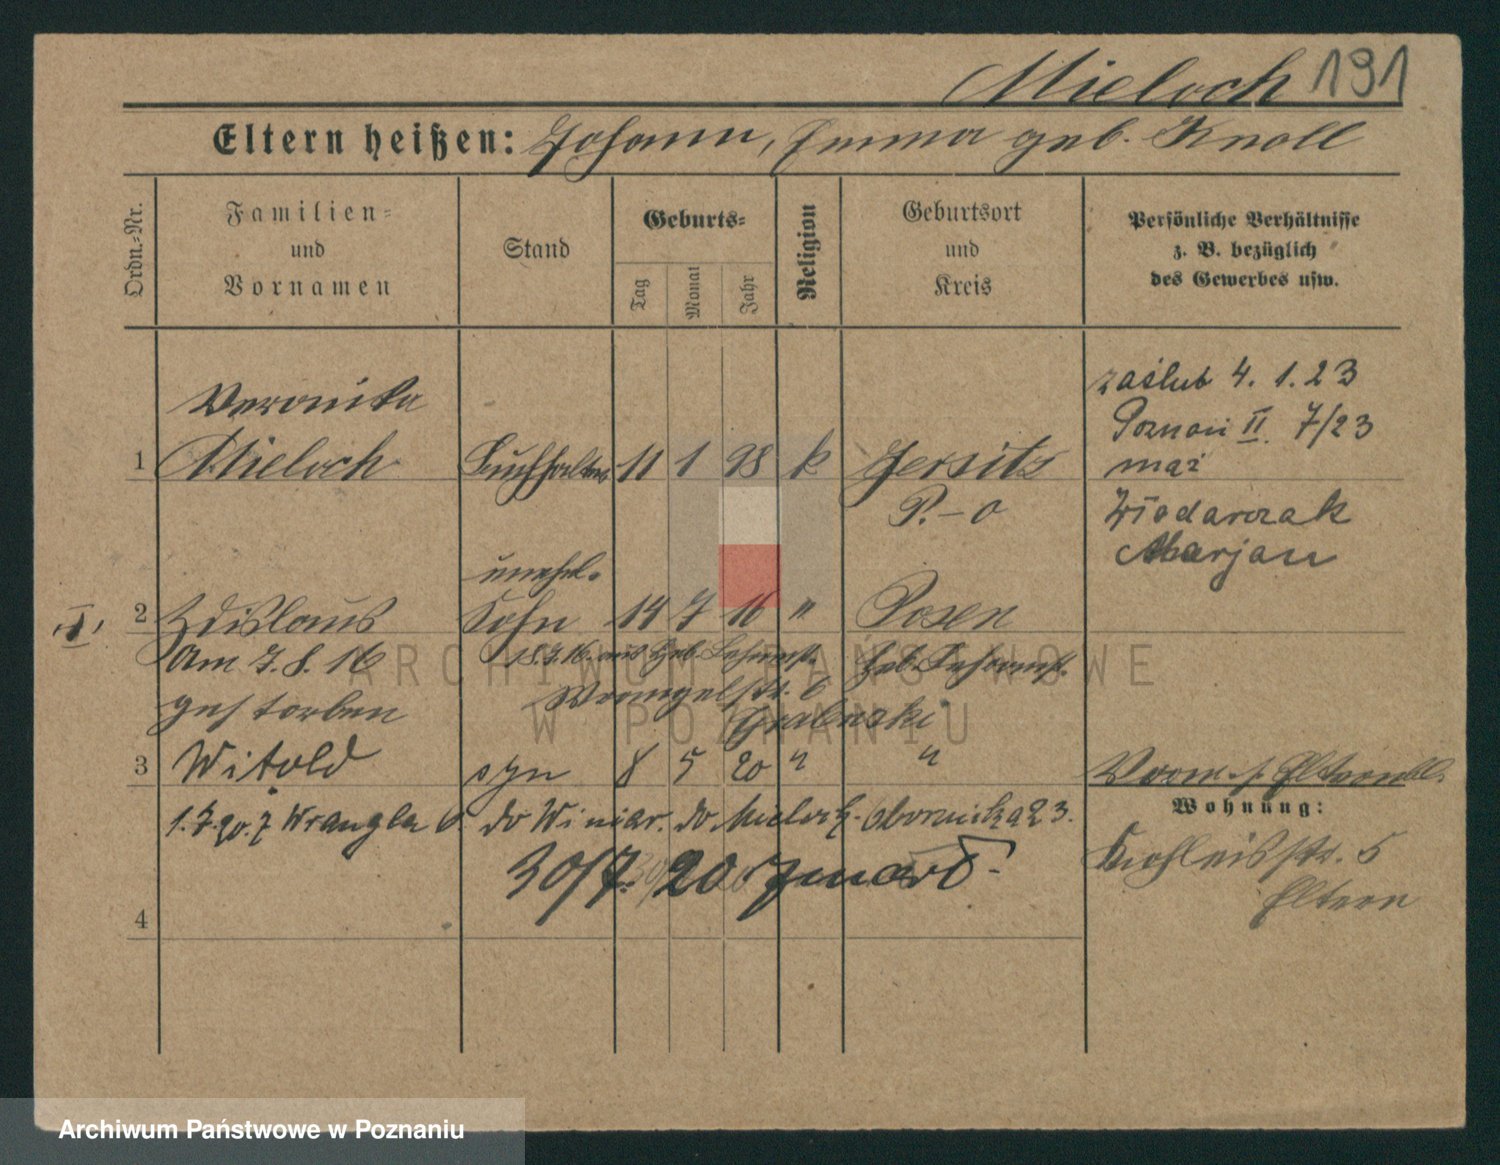 Mieloch 191
Eltern heißen: Johann, Emma geb. Knoll
Ordn.-Nr.
Familien-
und
Vornamen
Stand
Geburts-
Tag
Monat
Jahr
Religion
Geburtsort
und
Kreis
Persönliche Verhältnisse
z. B. bezüglich
des Gewerbes usw.
zaślub 4. 1. 23
Poznań II. 7/23
mąż
Włodarczak
Marjan
Veronika
1 Mieloch Buchhalterin 11 1 98 k Jersitz
P.-O
unehel.
2 Zdislaus Sohn 14 7 16 " Posen
Am 7.8.16
gestorben
18.7.16. aus Heb. Lehranst.
Wrangelstr. 6
Heb. Lehranst.
Graberski
3 Witold syn 8 5 20 " "
1.7.20. z Wrangla 6. do Winiar. do Mieloch. Obornicka 23.
30/7. 20 zmarł
Vorm. s. Elternbl.
Wohnung:
5
Eltern
4
ARCHIWUM PAŃSTWOWE
W POZNANIU
Archiwum Państwowe w Poznaniu